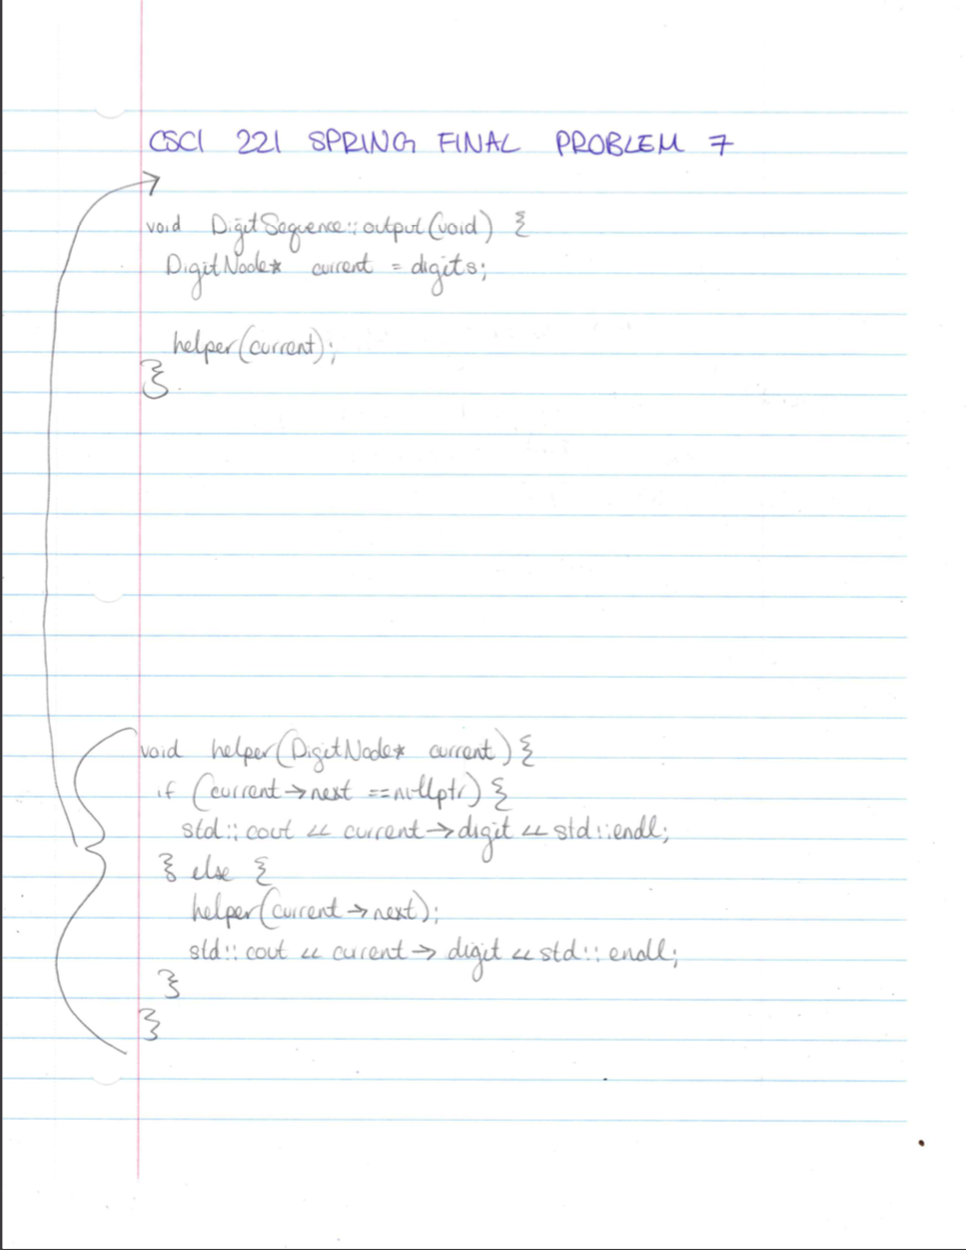 CSCI 221 SPRING FINAL PROBLEM 7
void DigitSequence::output(void) {
DigitNode* current = digits;
helper(current);
}
void helper(DigitNode* current) {
if (current->next == nullptr) {
std::cout << current->digit << std::endl;
} else {
helper(current->next);
std::cout << current->digit << std::endl;
}
}